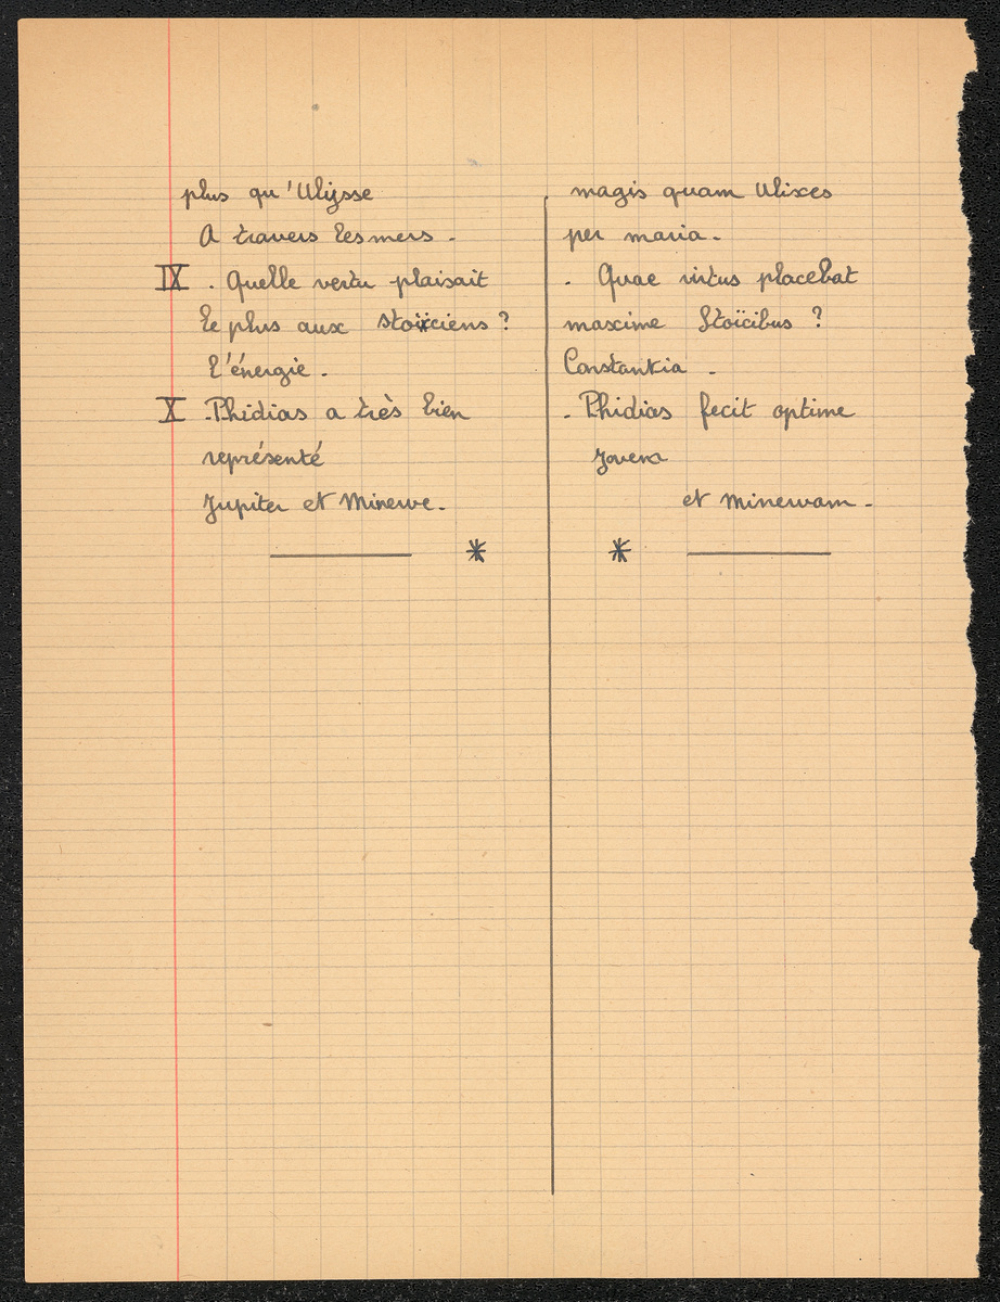 plus qu'Ulysse
A travers les mers.
IX. Quelle vertu plaisait
le plus aux stoïciens ?
L'énergie.
X. Phidias a très bien
représenté
Jupiter et Minerve.
*
magis quam Ulixes
per maria.
. Quae virtus placebat
maxime Stoïcibus ?
Constantia.
. Phidias fecit optime
Jovem
et Minervam.
*